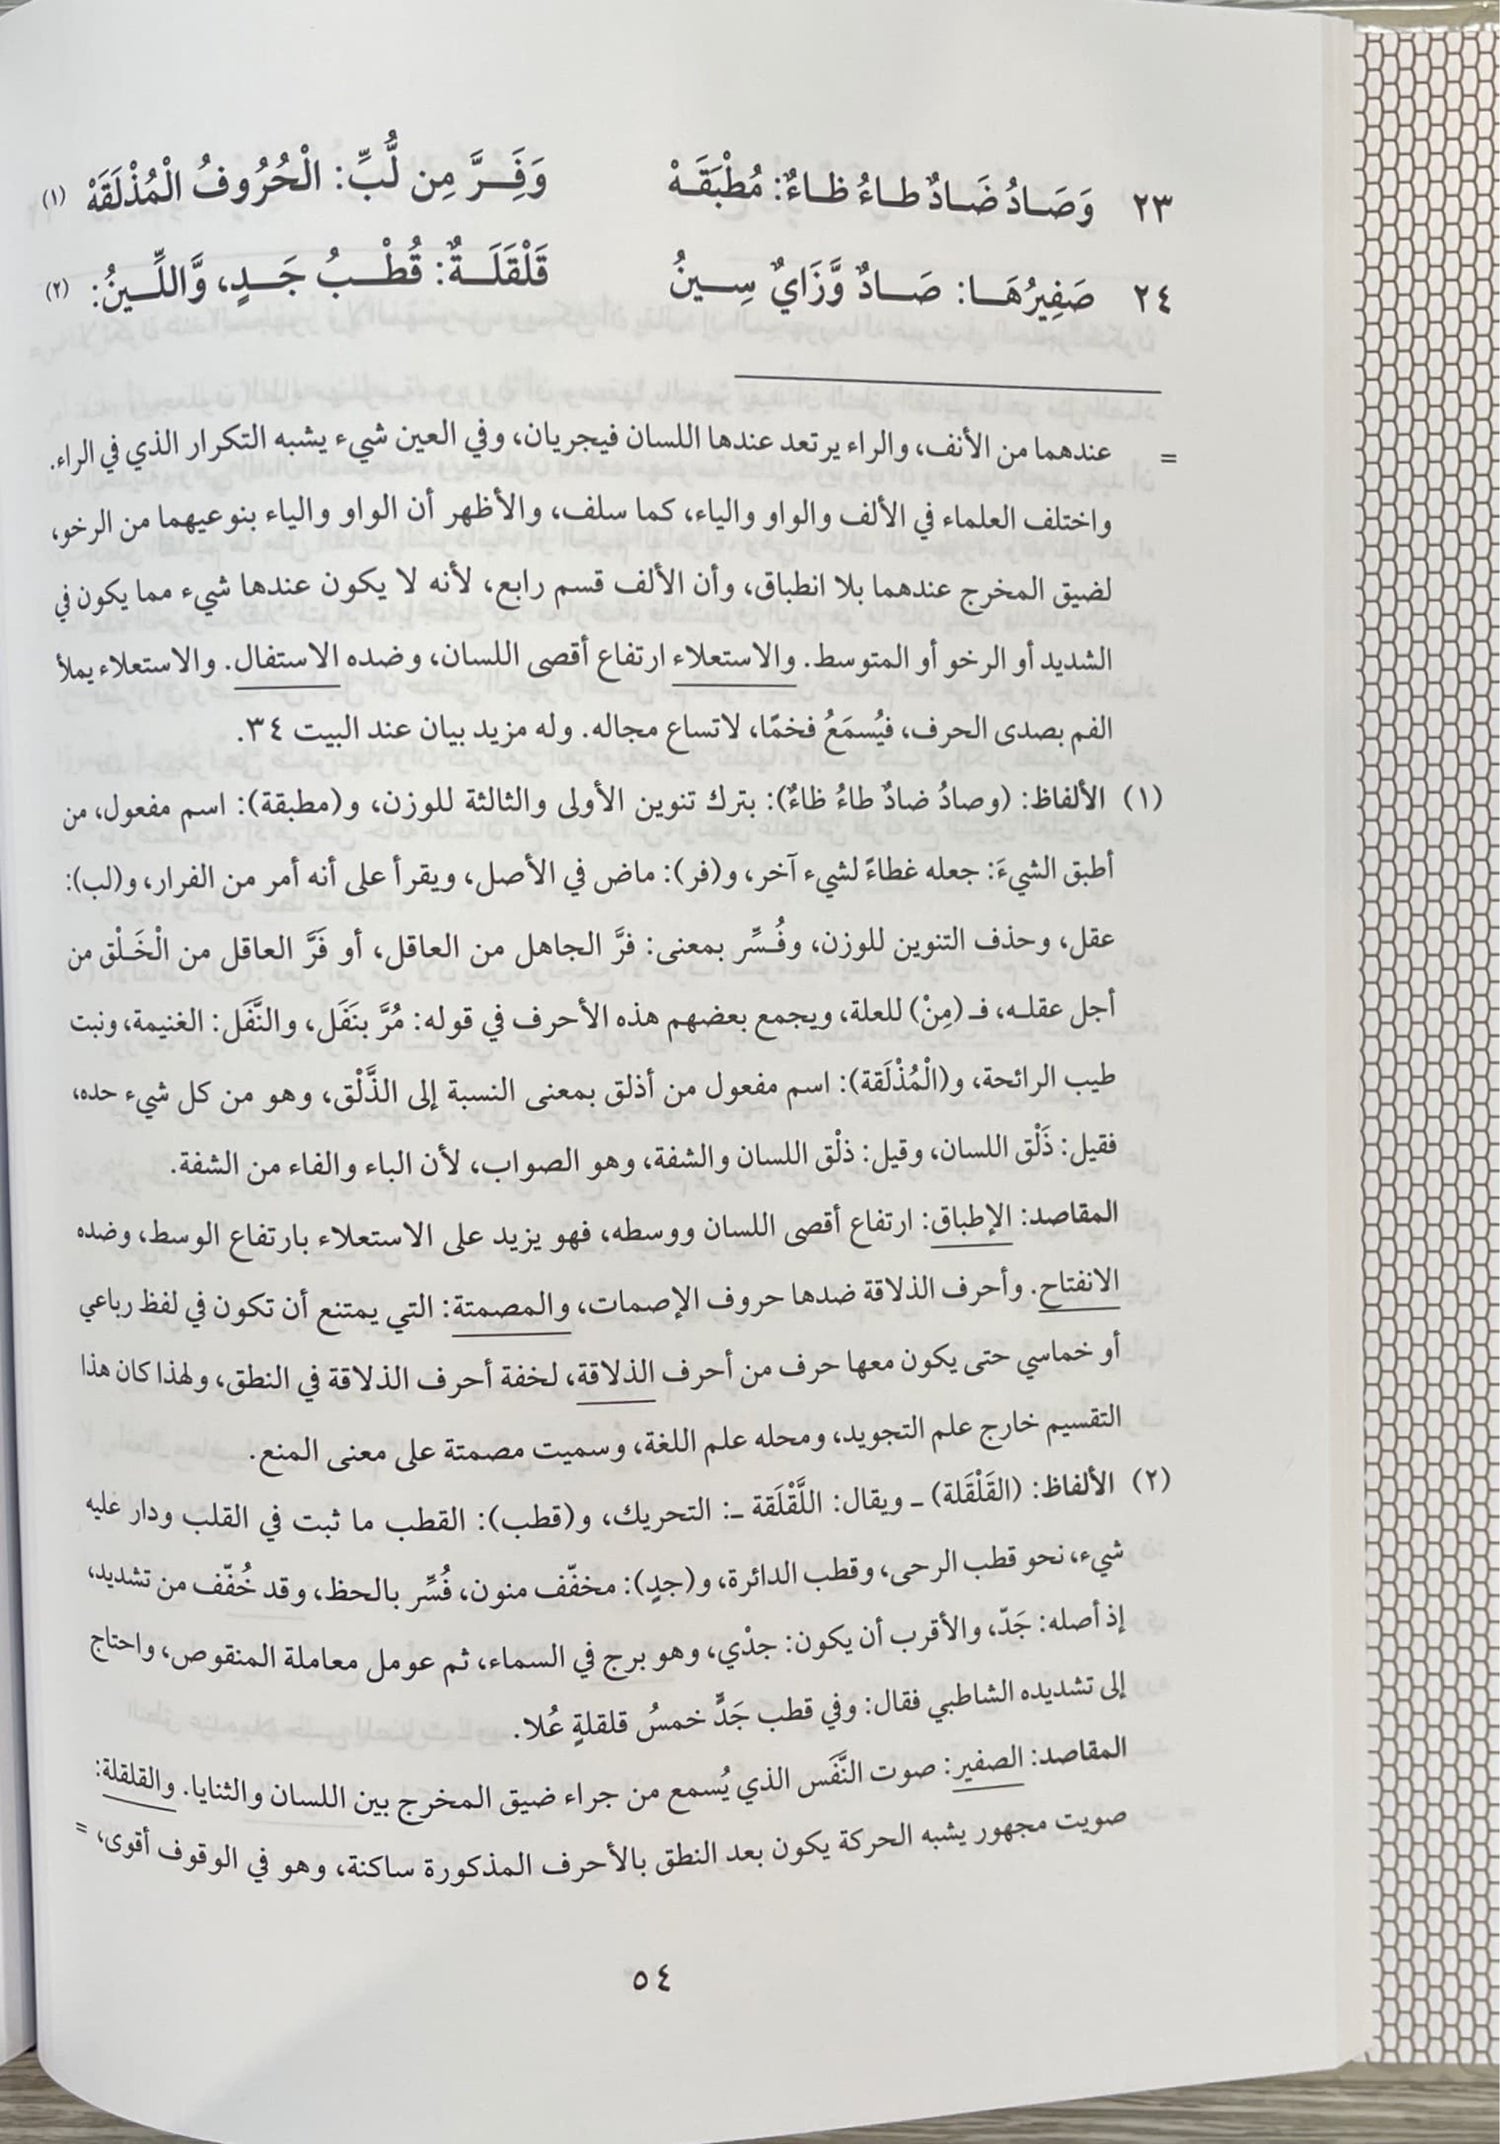 ٢٣ وَصَادُ ضَادٌ طَاءُ ظَاءٌ: مُطْبَقَهْ وَفِرَّ مِن لُّبِّ: الْحُرُوفُ الْمُذْلَقَهْ (١)
٢٤ صَفِيرُهَا: صَادٌ وَّزَايٌ سِينُ قَلْقَلَةٌ: قُطْبُ جَدٍ، وَّاللِّينُ: (٢)
= عندهما من الأنف، والراء يرتعد عندها اللسان فيجريان، وفي العين شيء يشبه التكرار الذي في الراء.
واختلف العلماء في الألف والواو والياء، كما سلف، والأظهر أن الواو والياء بنوعيهما من الرخو،
لضيق المخرج عندهما بلا انطباق، وأن الألف قسم رابع، لأنه لا يكون عندها شيء مما يكون في
الشديد أو الرخو أو المتوسط. والاستعلاء ارتفاع أقصى اللسان، وضده الاستفال. والاستعلاء يملأ
الفم بصدى الحرف، فيُسمَعُ فخمًا، لاتساع مجاله. وله مزيد بيان عند البيت ٣٤.
(١) الألفاظ: (وصادُ ضادٌ طاءُ ظاءٌ): بترك تنوين الأولى والثالثة للوزن، و(مطبقة): اسم مفعول، من
أطبق الشيءَ: جعله غطاءً لشيء آخر، و(فر): ماض في الأصل، ويقرأ على أنه أمر من الفرار، و(لب):
عقل، وحذف التنوين للوزن، وفُسِّر بمعنى: فرَّ الجاهل من العاقل، أو فَرَّ العاقل من الْخَلْق من
أجل عقله، فـ (مِنْ) للعلة، ويجمع بعضهم هذه الأحرف في قوله: مُرَّ بنَفَل، والنَّفَل: الغنيمة، ونبت
طيب الرائحة، و(الْمُذْلَقة): اسم مفعول من أذلق بمعنى النسبة إلى الذَّلْق، وهو من كل شيء حده،
فقيل: ذَلْق اللسان، وقيل: ذلْق اللسان والشفة، وهو الصواب، لأن الباء والفاء من الشفة.
المقاصد: الإطباق: ارتفاع أقصى اللسان ووسطه، فهو يزيد على الاستعلاء بارتفاع الوسط، وضده
الانفتاح. وأحرف الذلاقة ضدها حروف الإصمات، والمصمتة: التي يمتنع أن تكون في لفظ رباعي
أو خماسي حتى يكون معها حرف من أحرف الذلاقة، لخفة أحرف الذلاقة في النطق، ولهذا كان هذا
التقسيم خارج علم التجويد، ومحله علم اللغة، وسميت مصمتة على معنى المنع.
(٢) الألفاظ: (القَلْقَلة) ـ ويقال: اللَّقْلَقة ـ: التحريك، و(قطب): القطب ما ثبت في القلب ودار عليه
شيء، نحو قطب الرحى، وقطب الدائرة، و(جدٍ): مخفّف منون، فُسِّر بالحظ، وقد خُفّف من تشديد،
إذ أصله: جَدّ، والأقرب أن يكون: جدْي، وهو برج في السماء، ثم عومل معاملة المنقوص، واحتاج
إلى تشديده الشاطبي فقال: وفي قطب جَدٍّ خمسُ قلقلةٍ عُلا.
المقاصد: الصفير: صوت النَّفَس الذي يُسمع من جراء ضيق المخرج بين اللسان والثنايا. والقلقلة:
صويت مجهور يشبه الحركة يكون بعد النطق بالأحرف المذكورة ساكنة، وهو في الوقوف أقوى، =
٥٤